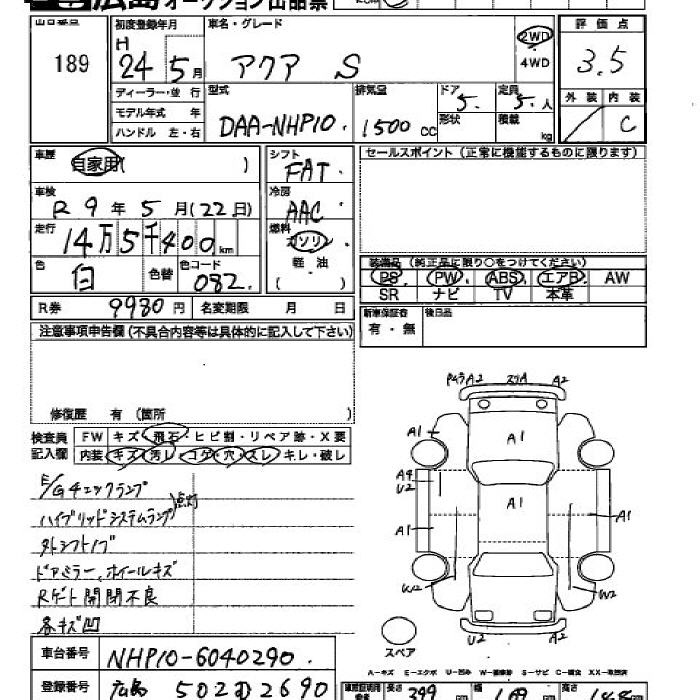 広島オークション出品票
出品番号 189
初度登録年月 H 24 5月
車名・グレード アクア S
2WD
4WD
評価点 3.5
外装 内装 C
ディーラー・並行
モデル年式 年
ハンドル 左・右
型式 DAA-NHP10.
排気量 1500 CC
ドア 5.
形状
定員 5.人
積載 kg
車歴 自家用( )
車検 R 9年 5月(22日)
走行 14万5千400km
色 白 色替 色コード 082.
シフト FAT.
冷房 AAC
燃料 ガソリン
軽・油
( )
セールスポイント(正常に機能するものに限ります)
装備品(純正品に限り○をつけてください)
PS PW. ABS エアB. AW
SR ナビ TV 本革
R券 9980円 名変期限 月 日
新車保証書 有・無
後日品
注意事項申告欄(不具合内容等は具体的に記入して下さい)
修復歴 有(箇所 )
検査員記入欄
FW キズ・飛石・ヒビ割・リペア跡・X要
内装 キズ・汚レ・コゲ・穴・スレ・キレ・破レ
E/Gチェックランプ
ハイブリッドシステムランプ 点灯
外シフトノブ
ドアミラー、ホイールキズ
Rゲート開閉不良
各キズ凹
PムラA2 スリA A2
A1 A1
A4
U2
A1
A1 A1
W2 W2
U2 A2
スペア
A-キズ E-エクボ U-凹み W-補修跡 S-サビ C-腐食 XX-交換済
車台番号 NHP10-6040290.
登録番号 広島 502
2690
長さ 399 幅 169